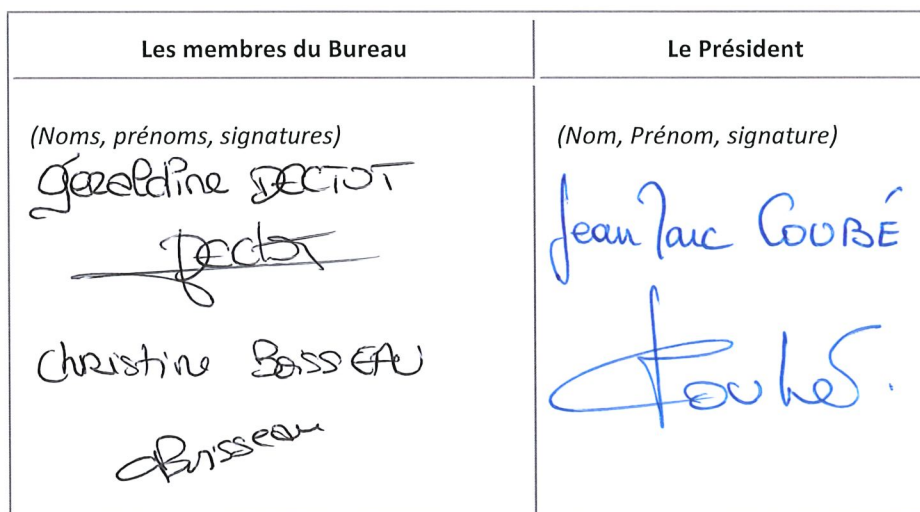 Les membres du Bureau
Le Président
(Noms, prénoms, signatures)
Géraldine DECTOT
Dectot
Christine BOISSEAU
CBoisseau
(Nom, Prénom, signature)
Jean Marc COUBÉ
Coubé.